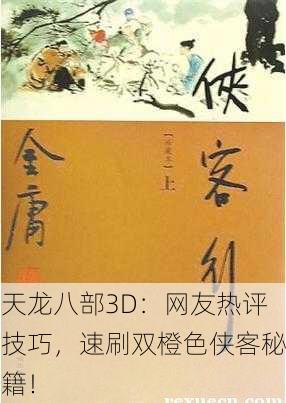 俠客行
[珍藏本]
上
金庸
天龙八部3D：网友热评
技巧，速刷双橙色侠客秘
籍！
rexuecn.com